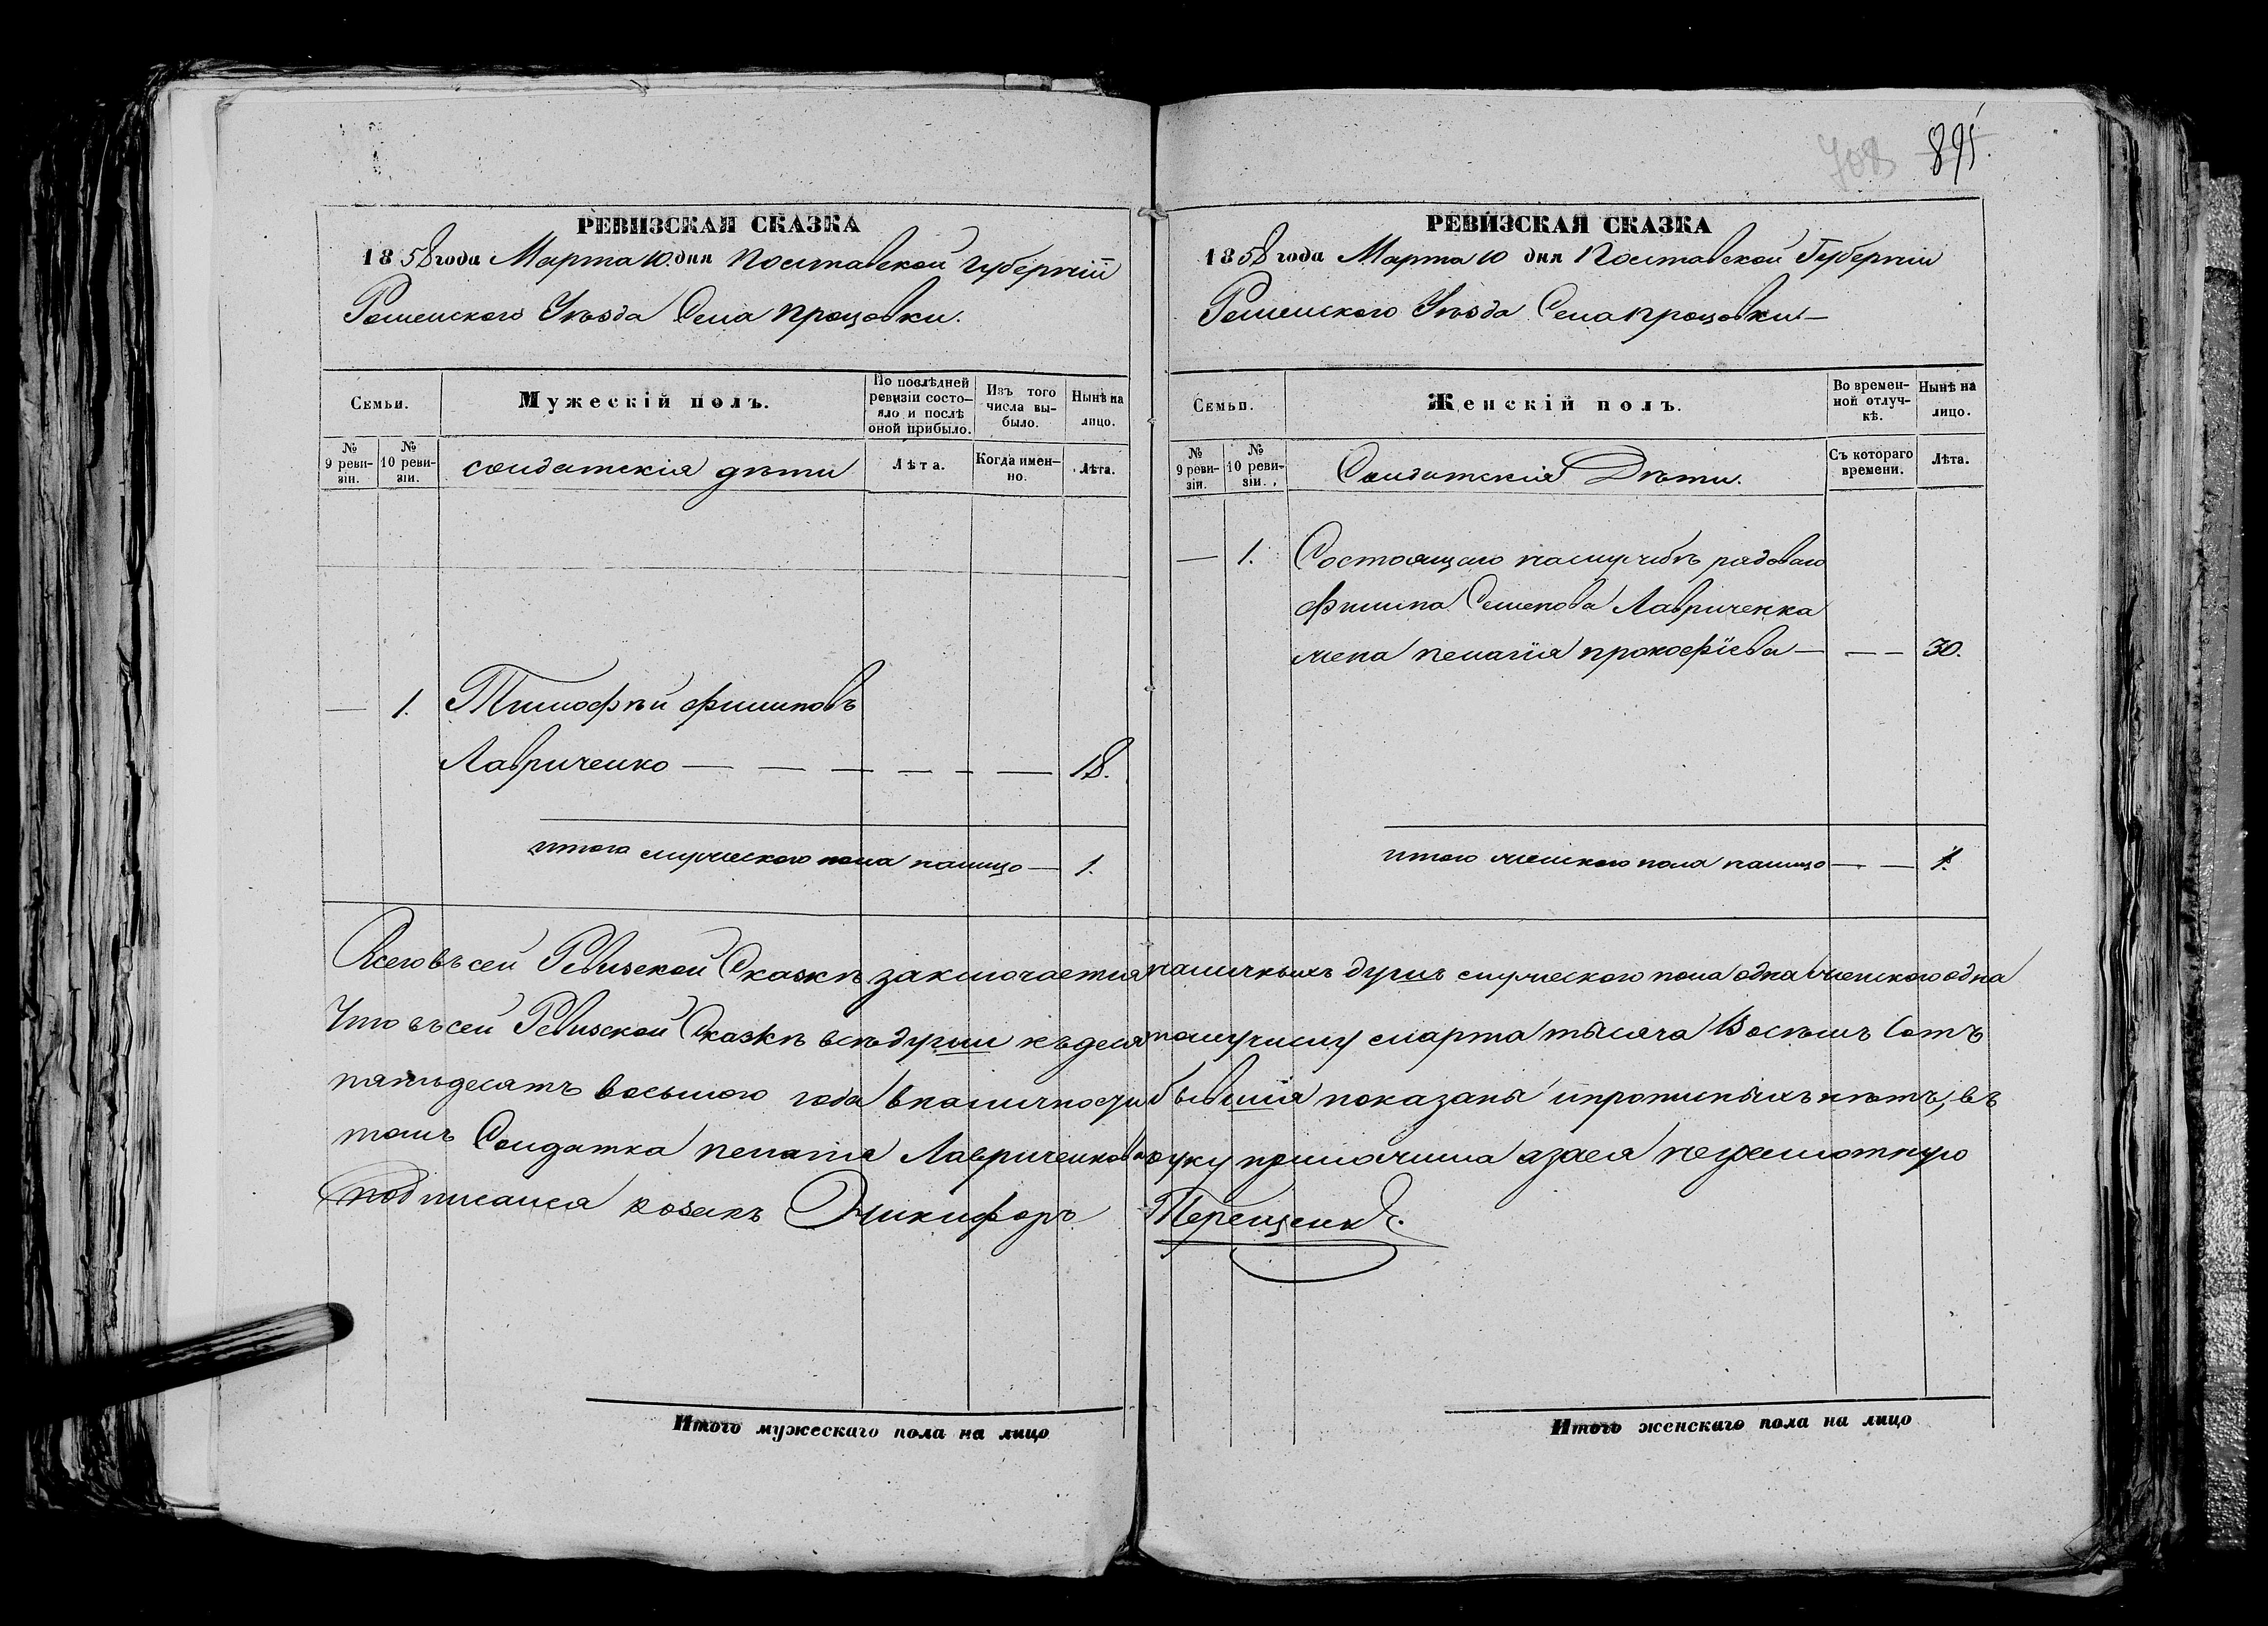 708 895.
РЕВИЗСКАЯ СКАЗКА
1858 года Марта 10. дня Полтавской губерніи
Роменского Уѣзда Села Процовки.
Семьи.
Мужескій полъ.
По послѣдней ревизіи состояло и послѣ оной прибыло.
Изъ того числа выбыло.
Нынѣ на лицо.
№ 9 ревизіи.
№ 10 ревизіи.
солдатскія дѣти
Лѣта.
Когда именно.
Лѣта.
— 1. Тимофѣй филиповъ
Лавриченко — — — — — — 18.
итого мужеского пола налицо — 1.
РЕВИЗСКАЯ СКАЗКА
1858 года Марта 10 дня Полтавской Губерніи
Роменского Уѣзда Села процовки —
Семьи.
Женскій полъ.
Во временной отлучкѣ.
Нынѣ на лицо.
№ 9 ревизіи.
№ 10 ревизіи.
Солдатскія Дѣти.
Съ котораго времени.
Лѣта.
— 1. Состоящаго наслужбѣ рядоваго
филипа Семенова Лавриченка
жена пелагія прокофіева — — — 30.
итого женского пола налицо — — 1.
Всего въ сей Ревизской Сказкѣ заключается наличныхъ душъ мужеского пола одна женского одна
Что въ сей Ревизской Сказкѣ всѣ души къ десятому числу марта тысяча Восѣмъ Сотъ
пятьдесятъ восьмого года вналичности бывшія показаны ипрописныхъ нѣтъ, въ
томъ Солдатка пелагія Лавриченкова руку приложила азаея неграмотную
подписался козакъ Никифоръ Терещенко.
Итого мужескаго пола на лицо
Итого женскаго пола на лицо